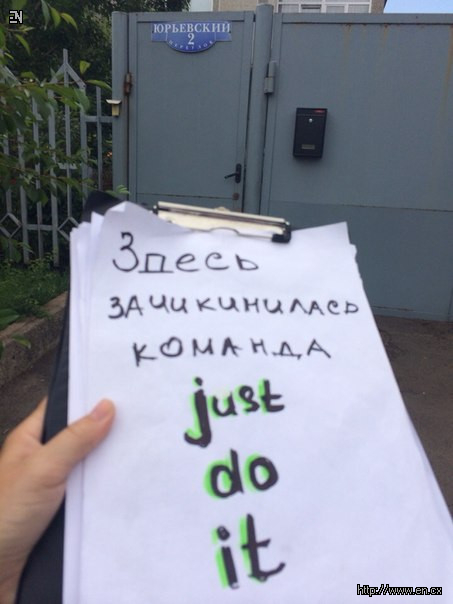 EN
ЮРЬЕВСКИЙ
2
ПЕРЕУЛОК
Здесь
зачикинилась
команда
just
do
it
http://www.en.cx